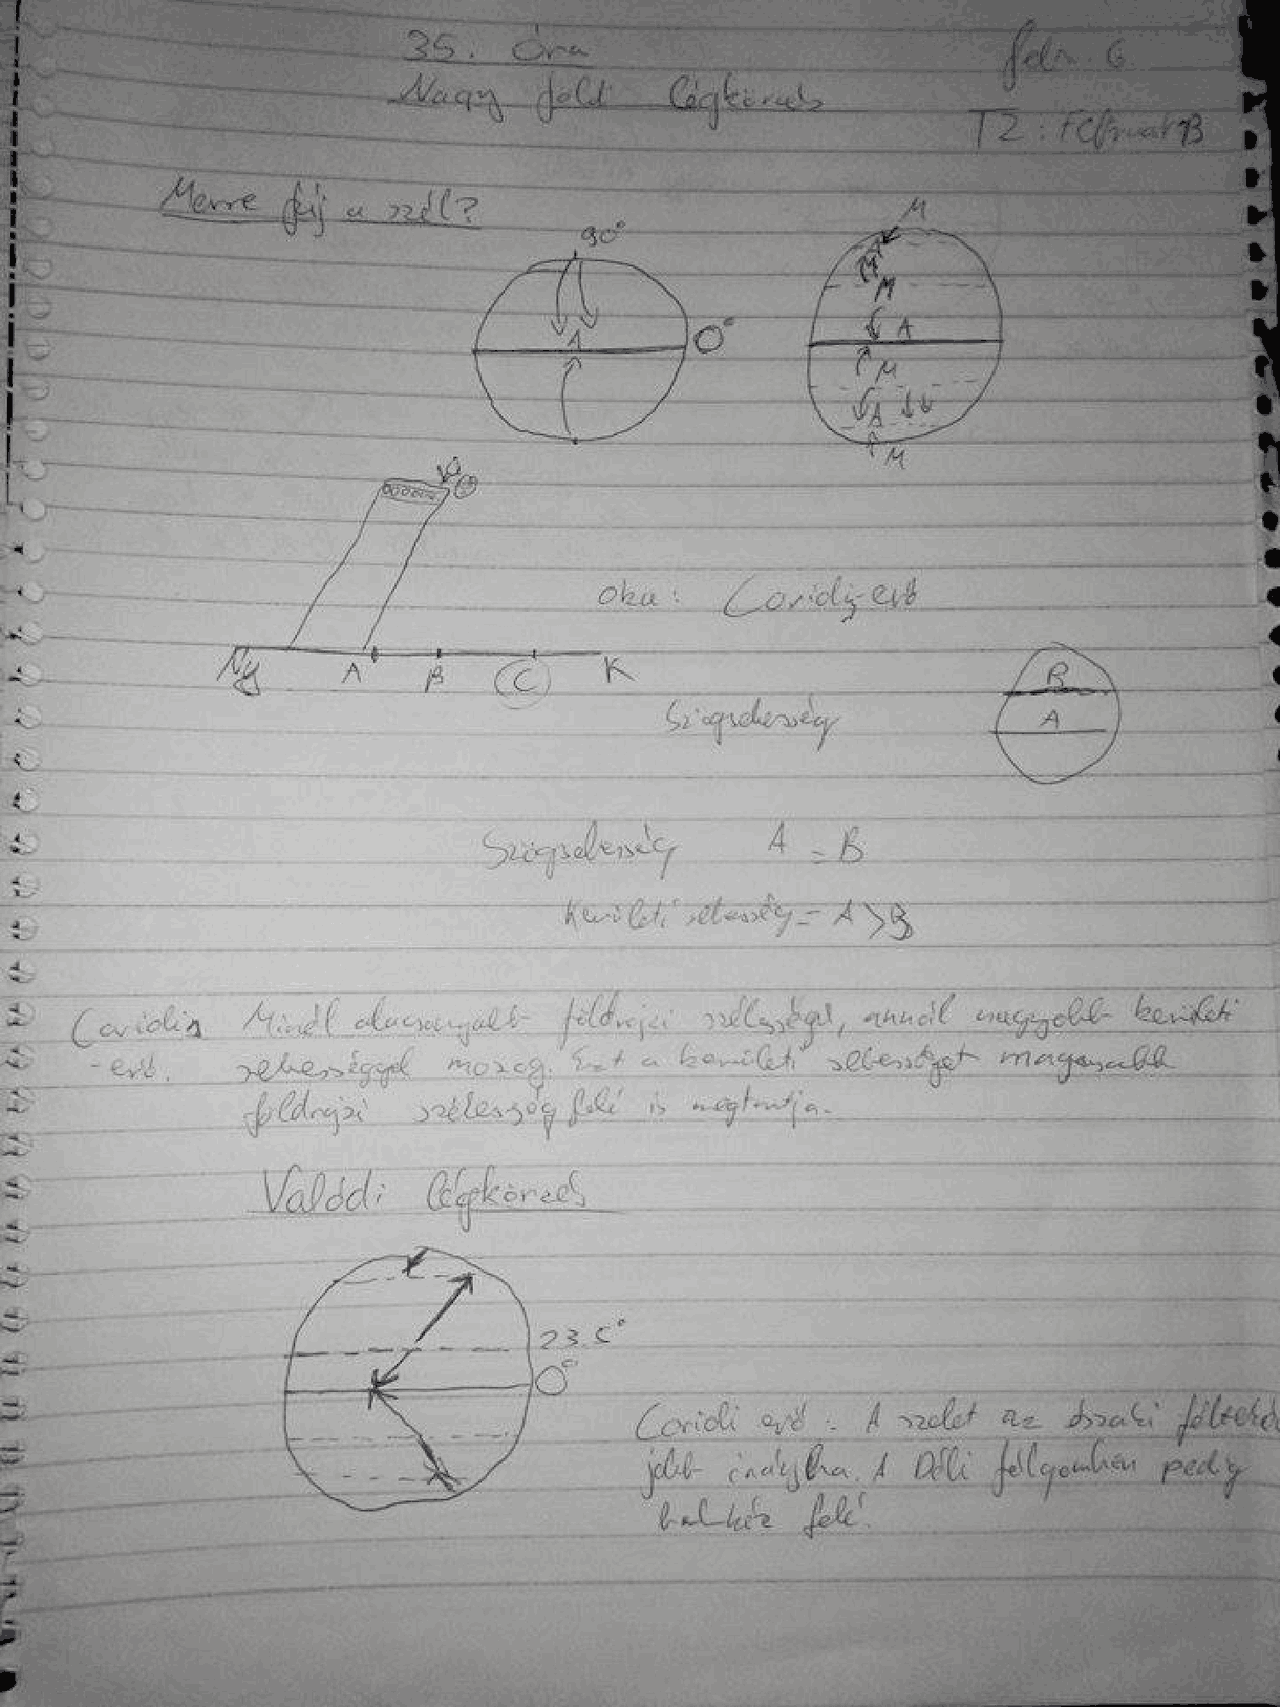 35. Óra
febr. 6
Nagy földi légkörzés
TZ: Február 13
Merre fúj a szél?
90°
M
M
M
A
0°
A
M
A
M
Oka: Coriolis-erő
Ny A B C K
B
A
Szögsebesség
Szögsebesség A = B
Kerületi sebesség = A > B
Coriolis Minél alacsonyabb földrajzi szélességű, annál nagyobb kerületi
-erő. sebességgel mozog. Ezt a kerületi sebességet magasabb
földrajzi szélesség felé is megtartja.
Valódi légkörzés
23.5°
0°
Corioli erő: A szelet az északi
jobb irányba. A Déli félgömbön pedig
balkéz felé.